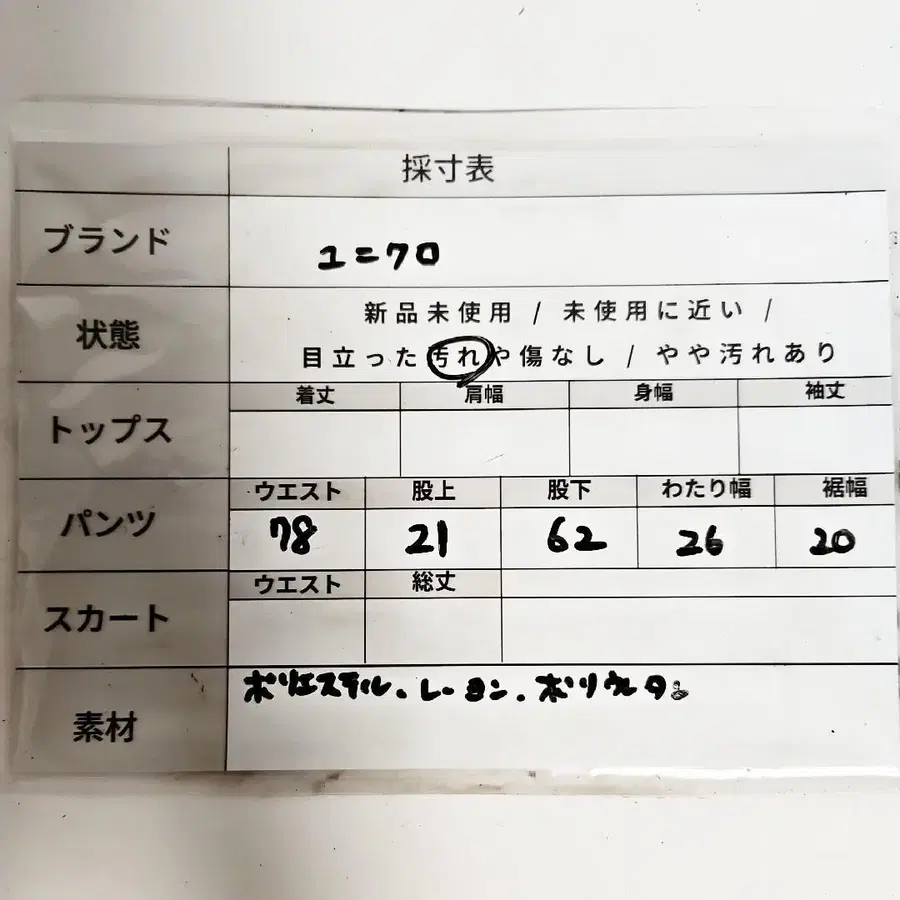 採寸表
ブランド ユニクロ
状態 新品未使用 / 未使用に近い /
目立った汚れや傷なし / やや汚れあり
トップス 着丈 肩幅 身幅 袖丈
パンツ ウエスト 股上 股下 わたり幅 裾幅
78 21 62 26 20
スカート ウエスト 総丈
素材 ポリエステル、レーヨン、ポリウレタン